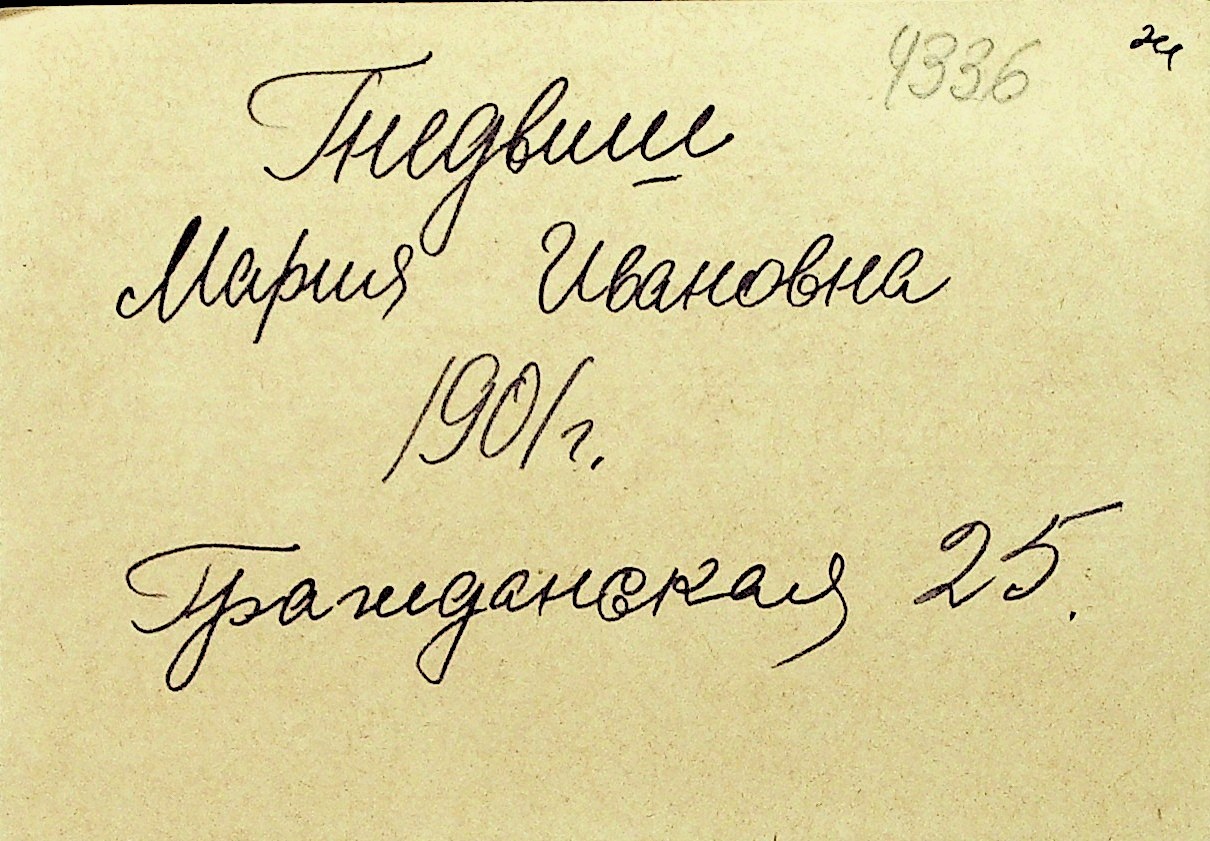 4336 ж
Гнедвиш
Мария Ивановна
1901 г.
Гражданская 25.